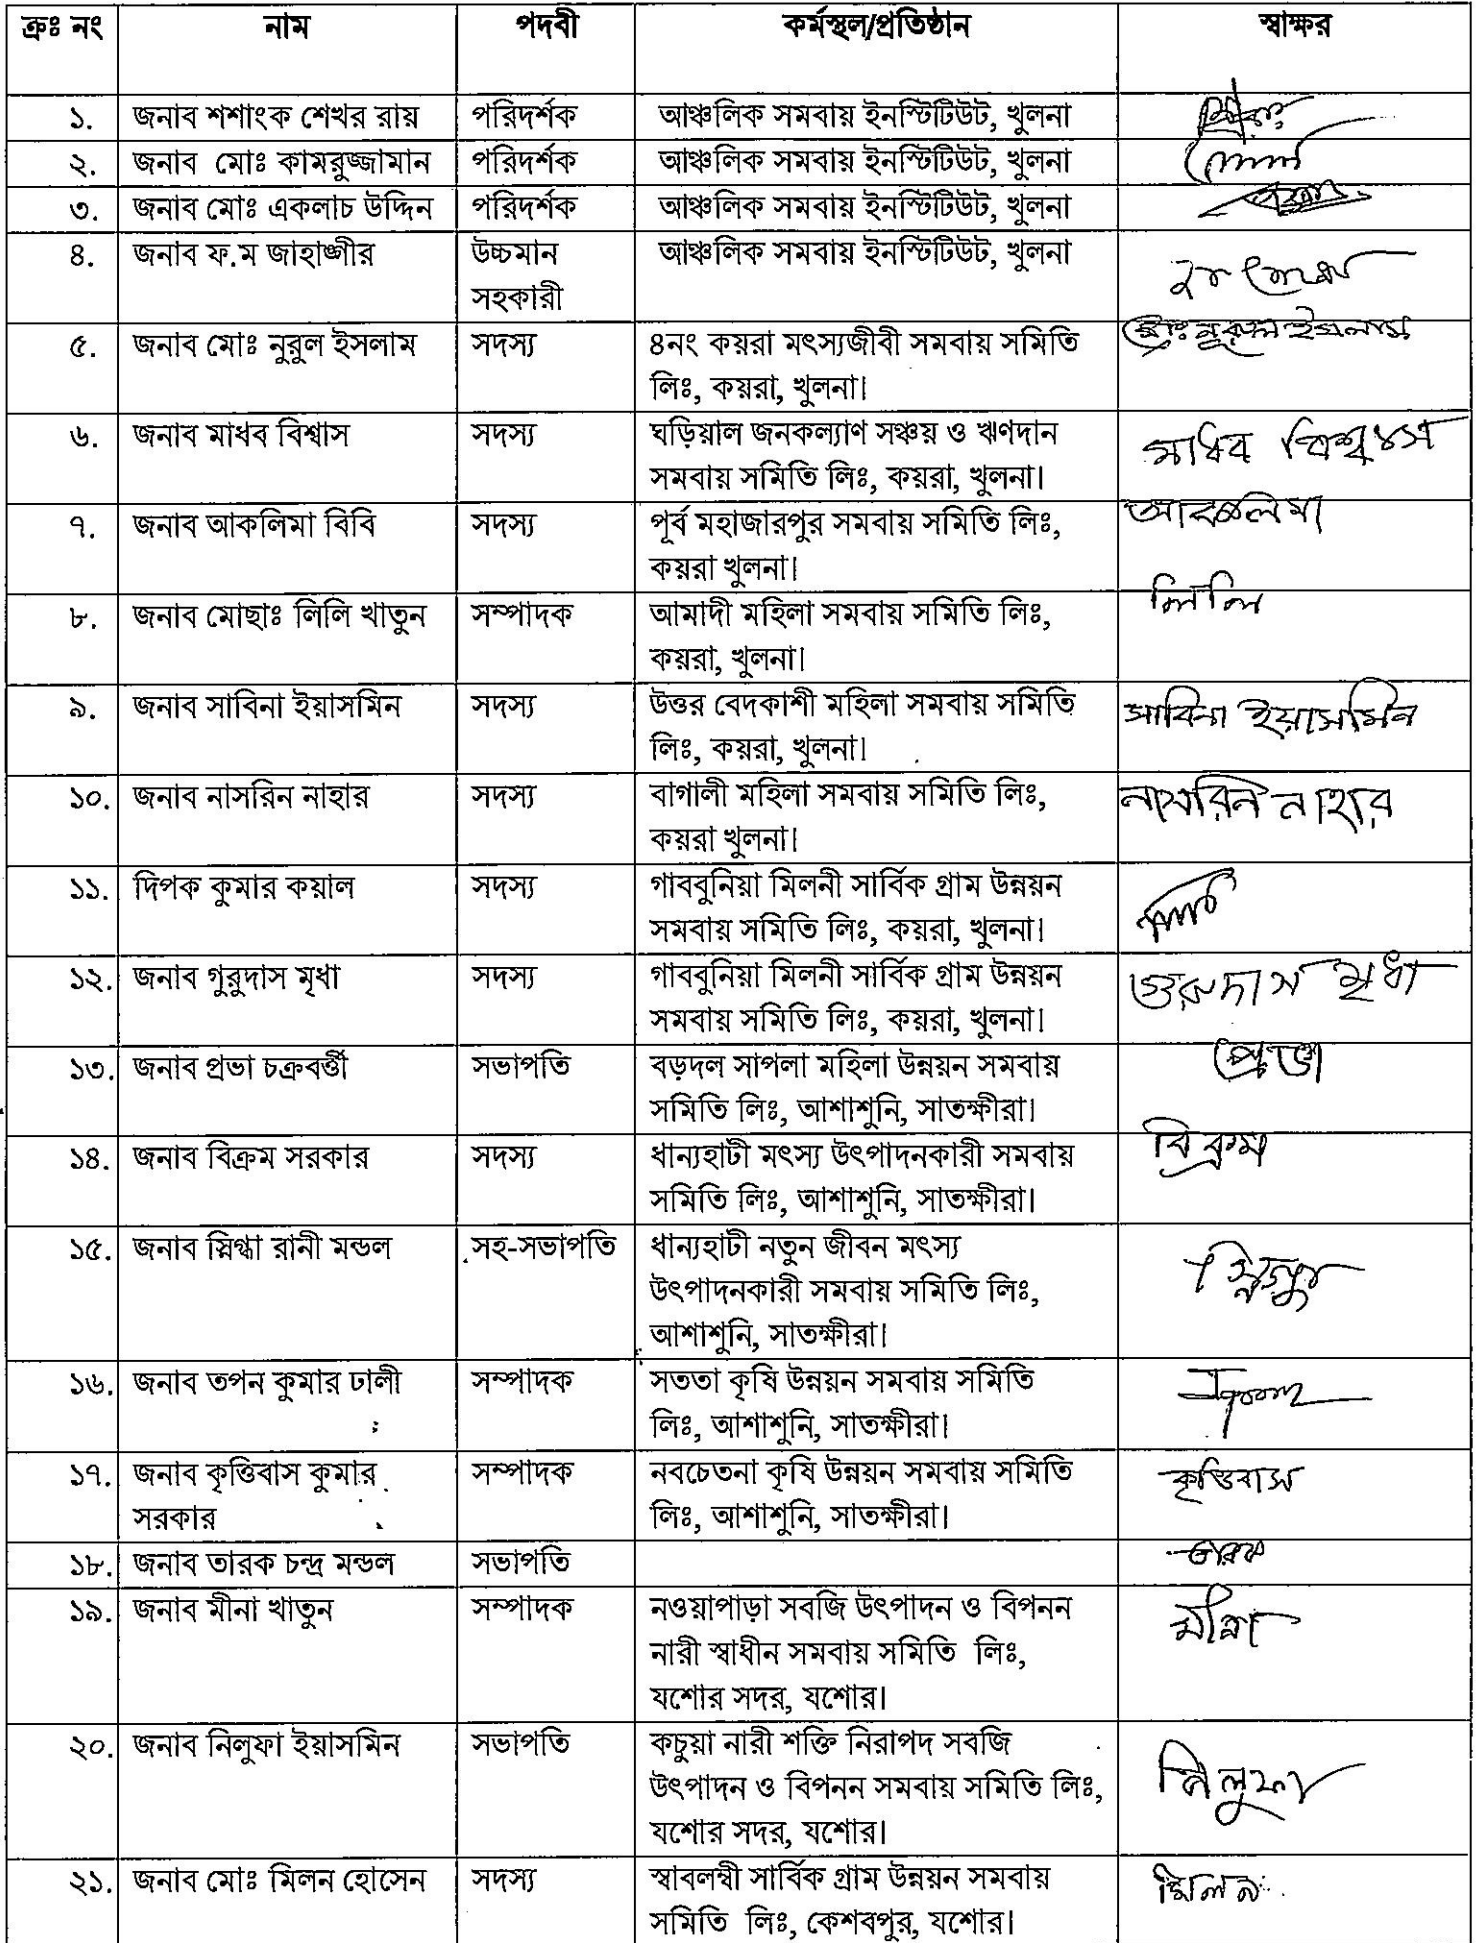 ক্রঃ নং নাম পদবী কর্মস্থল/প্রতিষ্ঠান স্বাক্ষর
১. জনাব শশাংক শেখর রায় পরিদর্শক আঞ্চলিক সমবায় ইনস্টিটিউট, খুলনা
২. জনাব মোঃ কামরুজ্জামান পরিদর্শক আঞ্চলিক সমবায় ইনস্টিটিউট, খুলনা
৩. জনাব মোঃ একলাচ উদ্দিন পরিদর্শক আঞ্চলিক সমবায় ইনস্টিটিউট, খুলনা
৪. জনাব ফ.ম জাহাঙ্গীর উচ্চমান আঞ্চলিক সমবায় ইনস্টিটিউট, খুলনা
সহকারী
৫. জনাব মোঃ নুরুল ইসলাম সদস্য ৪নং কয়রা মৎস্যজীবী সমবায় সমিতি মোঃ নূরুল ইসলাম
লিঃ, কয়রা, খুলনা।
৬. জনাব মাধব বিশ্বাস সদস্য ঘড়িয়াল জনকল্যাণ সঞ্চয় ও ঋণদান মাধব বিশ্বাস
সমবায় সমিতি লিঃ, কয়রা, খুলনা।
৭. জনাব আকলিমা বিবি সদস্য পূর্ব মহাজারপুর সমবায় সমিতি লিঃ, আকলিমা
কয়রা খুলনা।
৮. জনাব মোছাঃ লিলি খাতুন সম্পাদক আমাদী মহিলা সমবায় সমিতি লিঃ, লিলি
কয়রা, খুলনা।
৯. জনাব সাবিনা ইয়াসমিন সদস্য উত্তর বেদকাশী মহিলা সমবায় সমিতি সাবিনা ইয়াসমিন
লিঃ, কয়রা, খুলনা।
১০. জনাব নাসরিন নাহার সদস্য বাগালী মহিলা সমবায় সমিতি লিঃ, নাসরিন নাহার
কয়রা খুলনা।
১১. দিপক কুমার কয়াল সদস্য গাববুনিয়া মিলনী সার্বিক গ্রাম উন্নয়ন
সমবায় সমিতি লিঃ, কয়রা, খুলনা।
১২. জনাব গুরুদাস মৃধা সদস্য গাববুনিয়া মিলনী সার্বিক গ্রাম উন্নয়ন গুরুদাস মৃধা
সমবায় সমিতি লিঃ, কয়রা, খুলনা।
১৩. জনাব প্রভা চক্রবর্ত্তী সভাপতি বড়দল সাপলা মহিলা উন্নয়ন সমবায় প্রভা
সমিতি লিঃ, আশাশুনি, সাতক্ষীরা।
১৪. জনাব বিক্রম সরকার সদস্য ধান্যহাটী মৎস্য উৎপাদনকারী সমবায় বিক্রম
সমিতি লিঃ, আশাশুনি, সাতক্ষীরা।
১৫. জনাব স্নিগ্ধা রানী মন্ডল সহ-সভাপতি ধান্যহাটী নতুন জীবন মৎস্য
উৎপাদনকারী সমবায় সমিতি লিঃ,
আশাশুনি, সাতক্ষীরা।
১৬. জনাব তপন কুমার ঢালী সম্পাদক সততা কৃষি উন্নয়ন সমবায় সমিতি
লিঃ, আশাশুনি, সাতক্ষীরা।
১৭. জনাব কৃত্তিবাস কুমার সম্পাদক নবচেতনা কৃষি উন্নয়ন সমবায় সমিতি কৃত্তিবাস
সরকার লিঃ, আশাশুনি, সাতক্ষীরা।
১৮. জনাব তারক চন্দ্র মন্ডল সভাপতি তারক
১৯. জনাব মীনা খাতুন সম্পাদক নওয়াপাড়া সবজি উৎপাদন ও বিপনন মীনা
নারী স্বাধীন সমবায় সমিতি লিঃ,
যশোর সদর, যশোর।
২০. জনাব নিলুফা ইয়াসমিন সভাপতি কচুয়া নারী শক্তি নিরাপদ সবজি নিলুফা
উৎপাদন ও বিপনন সমবায় সমিতি লিঃ,
যশোর সদর, যশোর।
২১. জনাব মোঃ মিলন হোসেন সদস্য স্বাবলম্বী সার্বিক গ্রাম উন্নয়ন সমবায় মিলন
সমিতি লিঃ, কেশবপুর, যশোর।